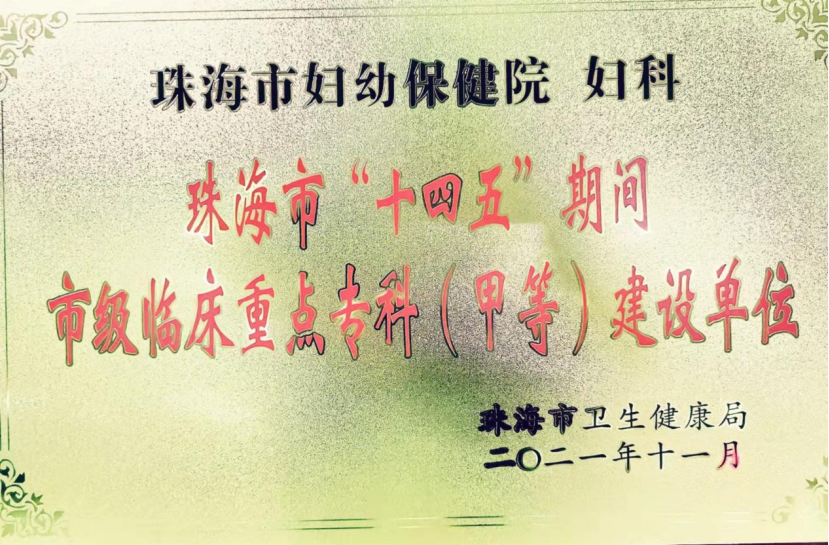 珠海市妇幼保健院 妇科
珠海市“十四五”期间
市级临床重点专科（甲等）建设单位
珠海市卫生健康局
二〇二一年十一月